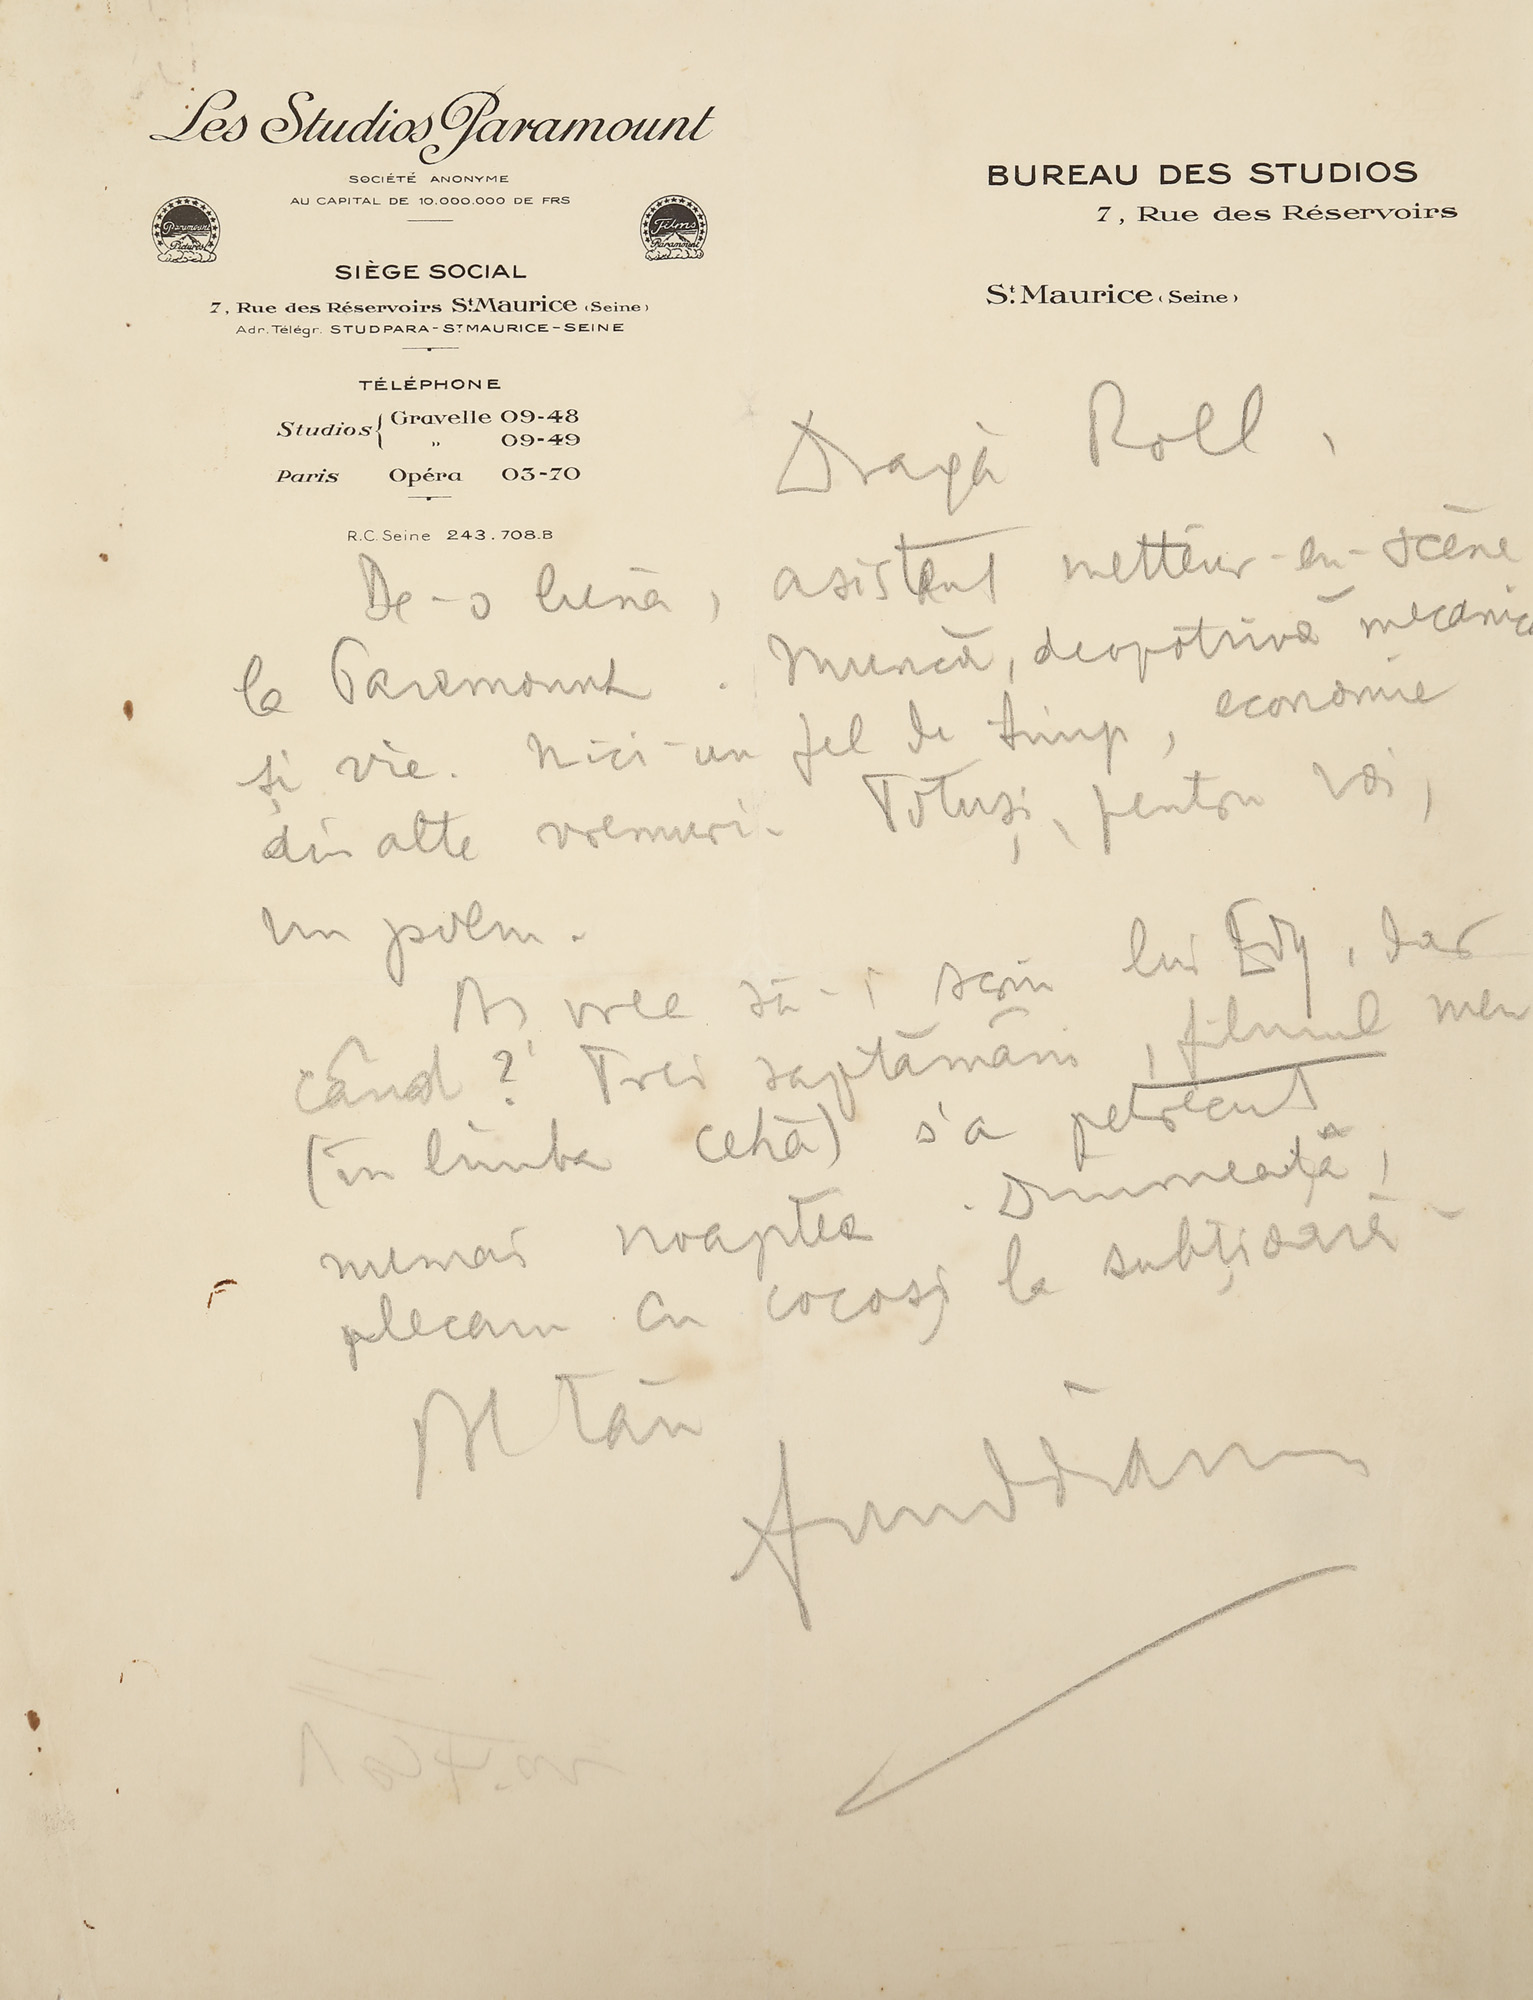 Les Studios Paramount
SOCIÉTÉ ANONYME
AU CAPITAL DE 10.000.000 DE FRS
Paramount
Pictures
Films
Paramount
SIÈGE SOCIAL
7, Rue des Réservoirs St. Maurice (Seine)
Adr. Télégr. STUDPARA-ST MAURICE-SEINE
TÉLÉPHONE
Studios { Gravelle 09-48
„ 09-49
Paris Opéra 03-70
R.C. Seine 243.708.B
BUREAU DES STUDIOS
7, Rue des Réservoirs
St. Maurice (Seine)
Dragă Roll,
De-o lună, asistent metteur-en-scène
la Paramount. Muncă, deopotrivă mecanică
și vie. Nici-un fel de timp, economie
din alte vremuri. Totuși, pentru voi,
un poem.
Aș vrea să-i scriu lui Edy, dar
când? Trei saptămâni, filmul meu
(în limba cehă) s'a petrecut
numai noaptea. Dimineață,
plecam cu cocoși la subțioară
Al tău
Fundoianu